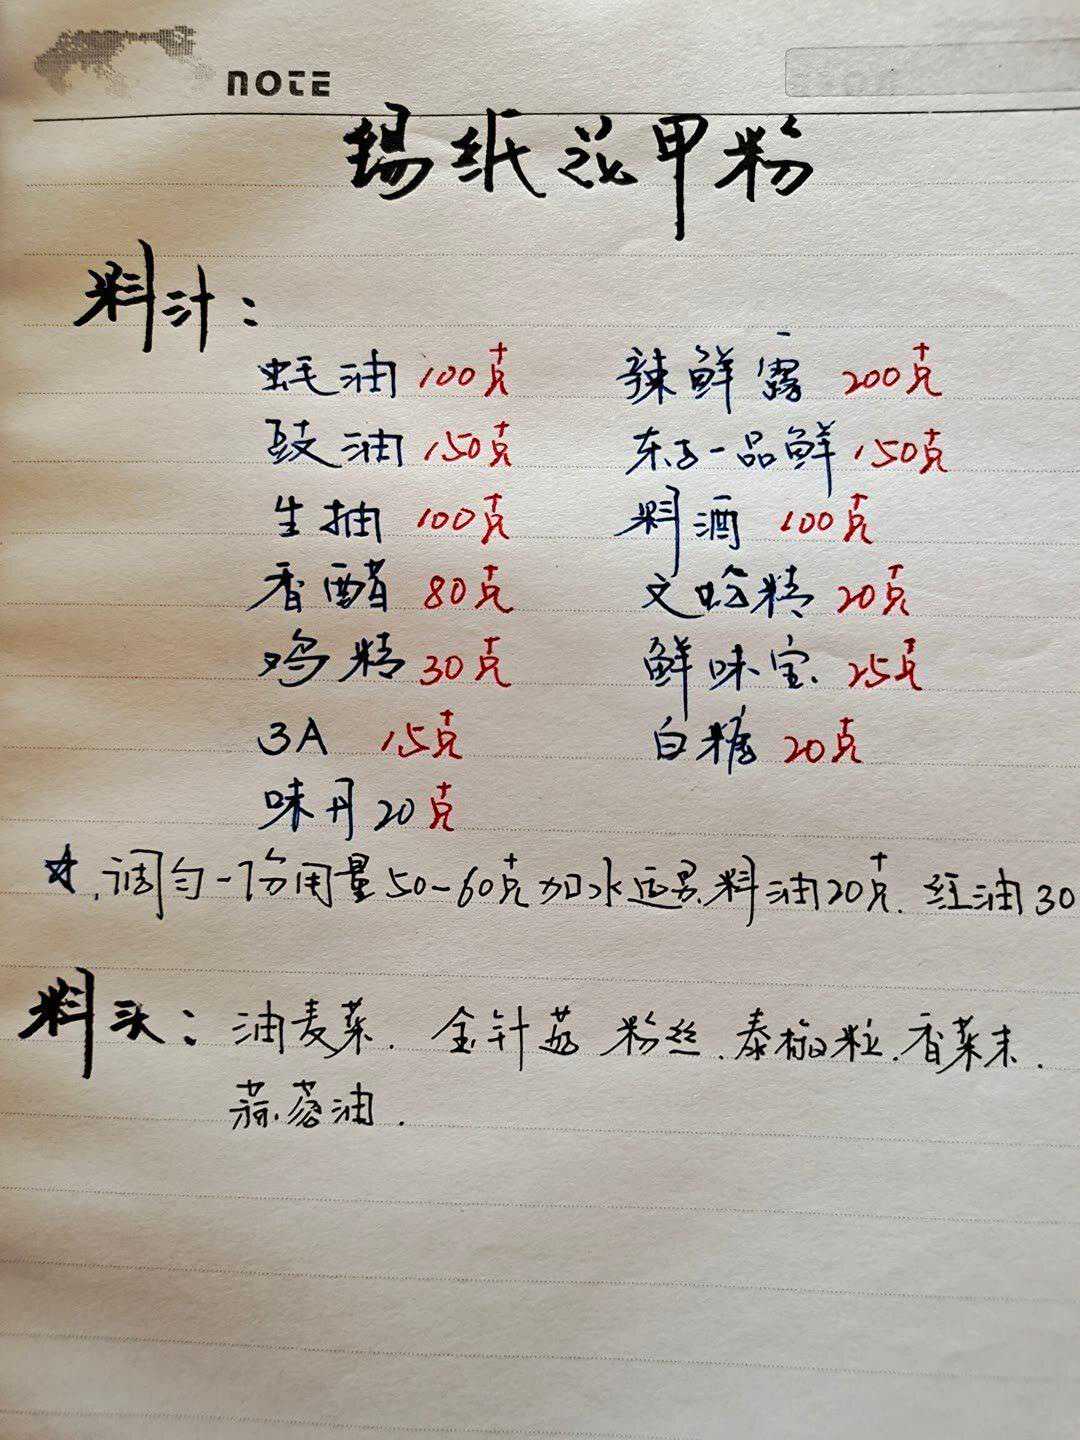 NOTE
锡纸花甲粉
料汁:
蚝油 100克 辣鲜露 200克
豉油 150克 东古一品鲜 150克
生抽 100克 料酒 100克
香醋 80克 文蛤精 20克
鸡精 30克 鲜味宝 25克
3A 15克 白糖 20克
味丹 20克
☆.调匀一份用量50-60克加水 料油20克.红油30
料头:油麦菜.金针菇 粉丝.泰椒粒.香菜末.
蒜蓉油.